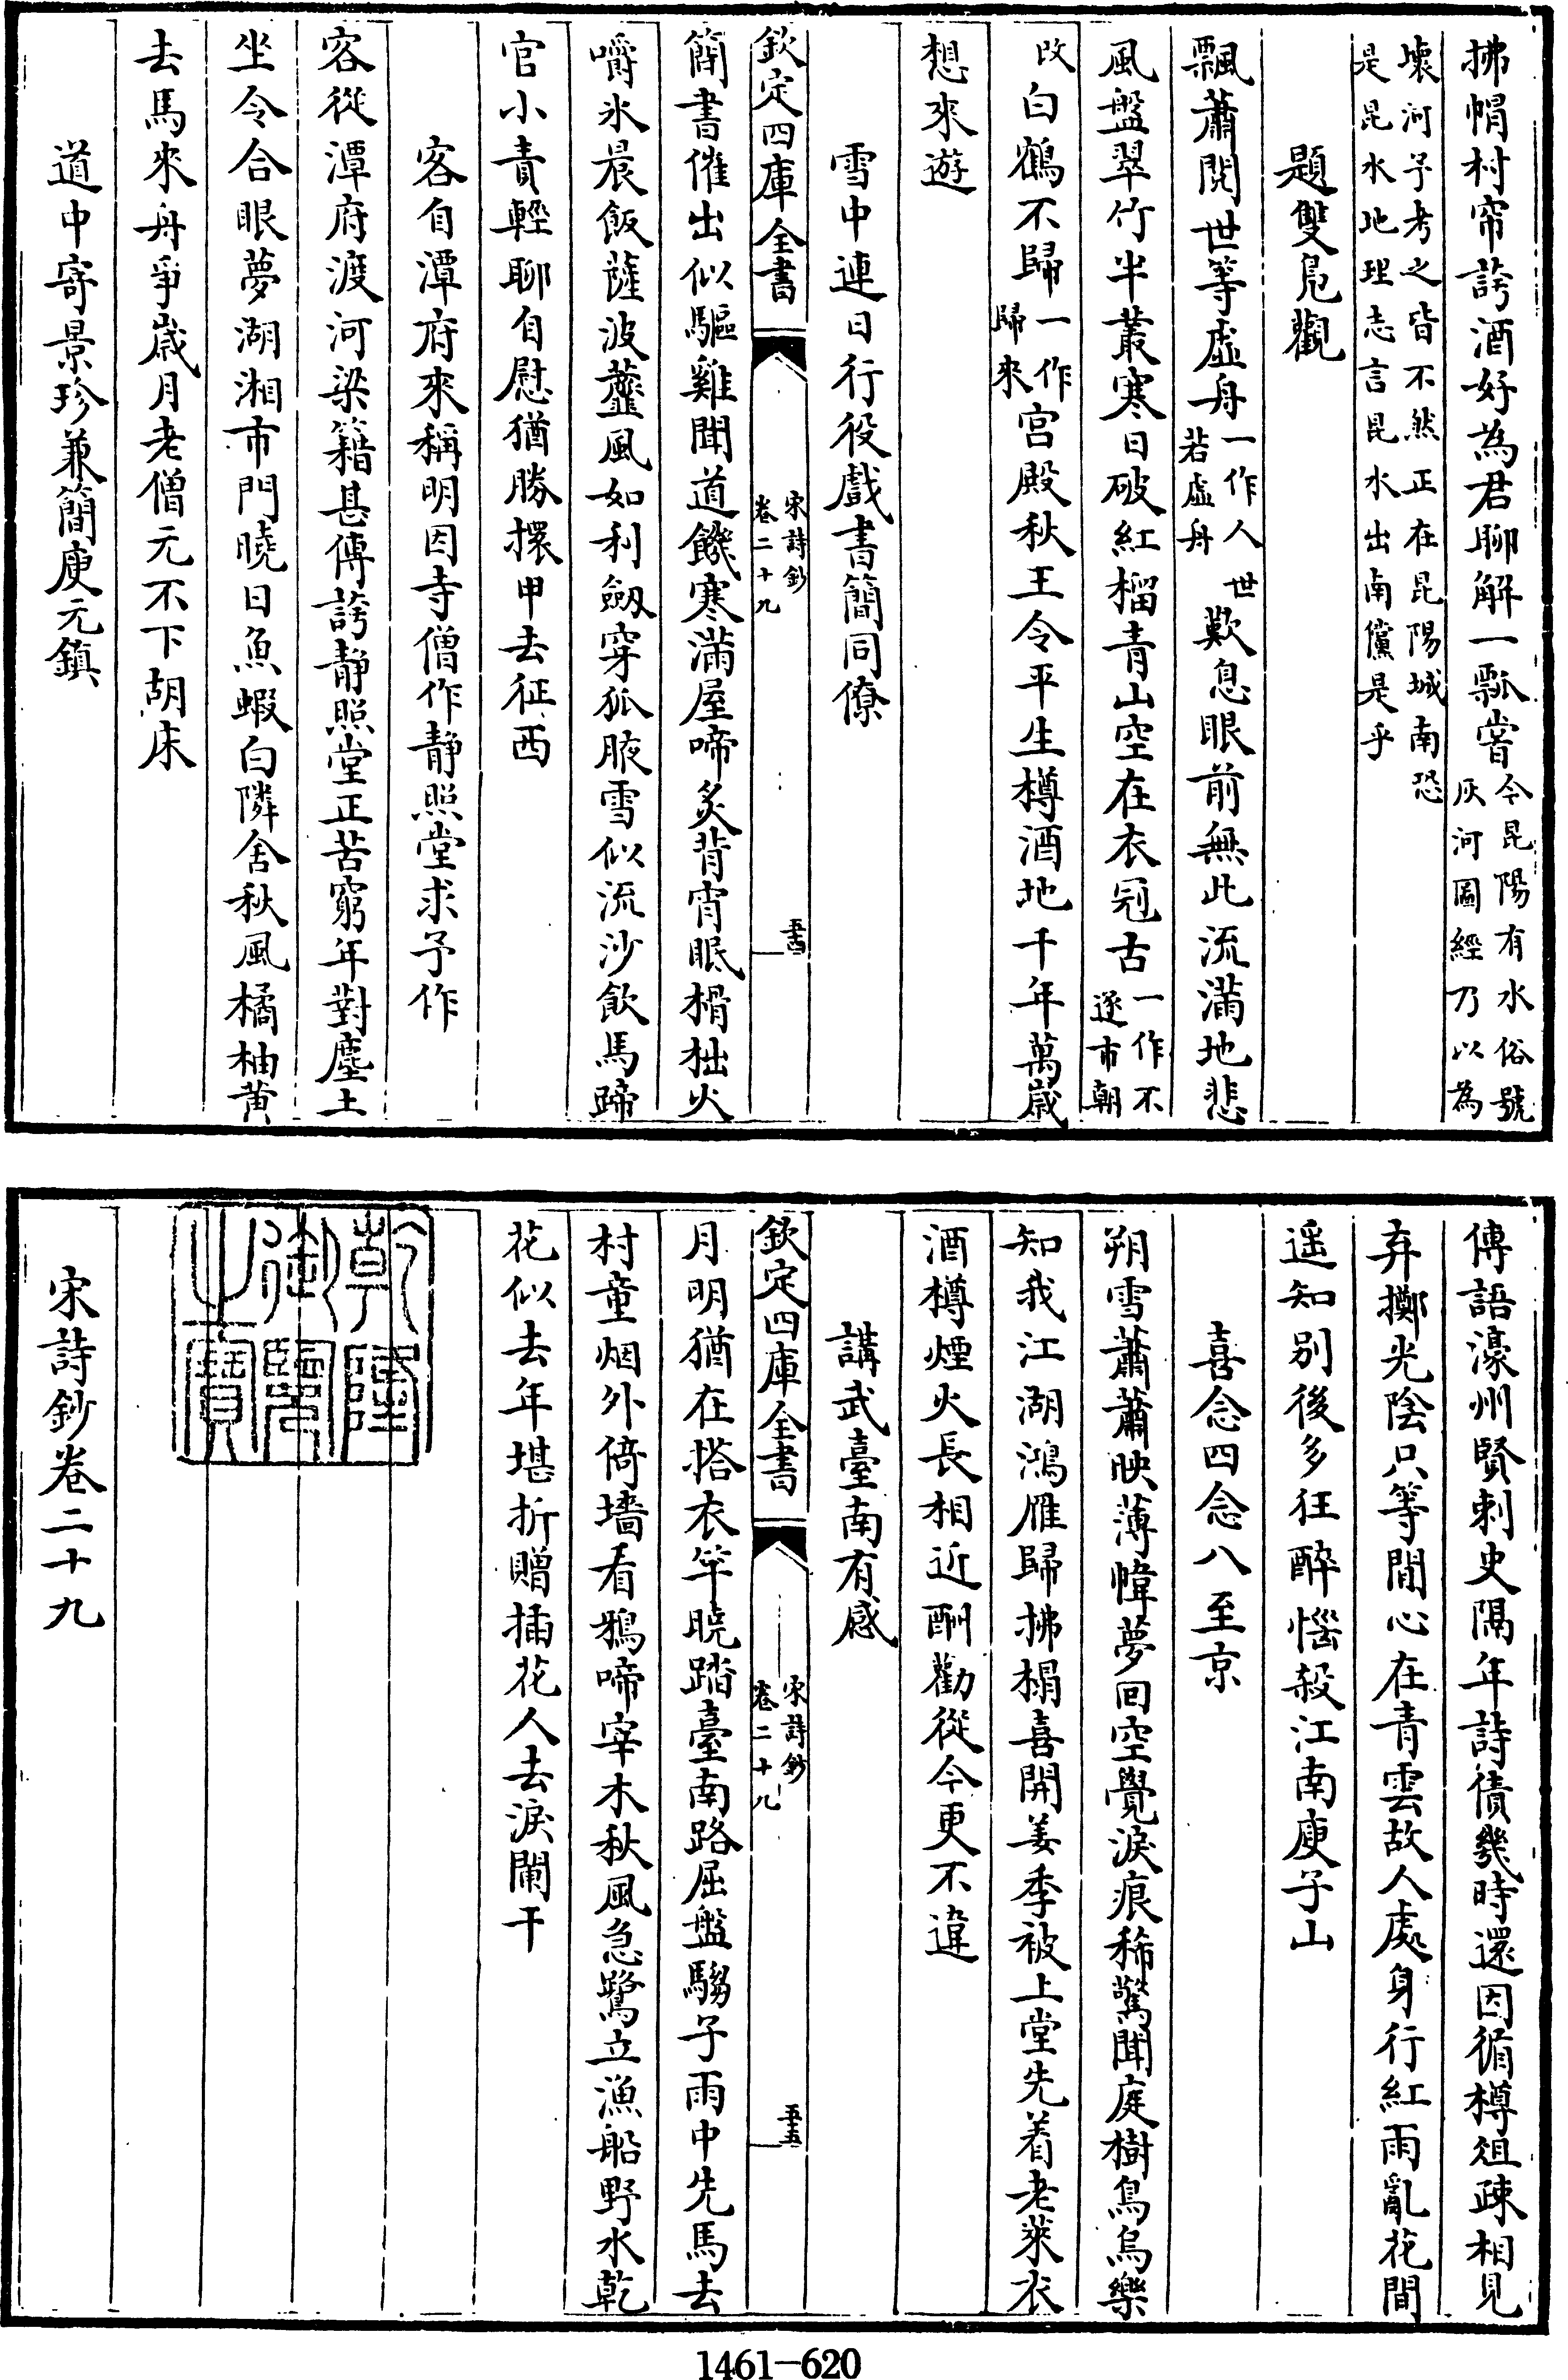 拂帽村帘誇酒好為君聊解一瓢嘗今昆陽有水俗號灰河圖經乃以為
壞河予考之皆不然正在昆陽城南恐是昆水地理志言昆水出南儻是乎
題雙鳧觀
飄蕭閱世等虛舟一作人世若虛舟歎息眼前無此流滿地悲
風盤翠竹半叢寒日破紅榴青山空在衣冠古一作不逐市朝
改白鶴不歸一作歸來宫殿秋王令平生樽酒地千年萬歲
想來遊
雪中連日行役戲書簡同僚
欽定四庫全書
宋詩鈔
卷二十九
五十四
簡書催出似驅雞聞道饑寒滿屋啼炙背宵眠榾柮火
嚼氷晨飯薩波虀風如利劒穿狐腋雪似流沙飲馬蹄
官小責輕聊自慰猶勝擐甲去征西
客自潭府來稱明因寺僧作静照堂求予作
客從潭府渡河梁籍甚傳誇静照堂正苦窮年對塵土
坐令合眼夢湖湘市門曉日魚蝦白隣舍秋風橘柚黄
去馬來舟爭歲月老僧元不下胡床
道中寄景珍兼簡庾元鎮
傳語濠州賢刺史隔年詩債幾時還因循樽俎疎相見
弃擲光陰只等閒心在青雲故人處身行紅雨亂花間
遥知别後多狂醉惱殺江南庾子山
喜念四念八至京
朔雪蕭蕭映薄幃夢回空覺淚痕稀驚聞庭樹鳥烏樂
知我江湖鴻雁歸拂榻喜開姜季被上堂先着老萊衣
酒樽煙火長相近酬勸從今更不違
講武臺南有感
欽定四庫全書
宋詩鈔
卷二十九
五十五
月明猶在搭衣竿曉踏臺南路屈盤騶子雨中先馬去
村童烟外倚墻看鴉啼宰木秋風急鷺立漁船野水乾
花似去年堪折贈插花人去淚闌干
乾隆御覽之寶
宋詩鈔卷二十九
1461-620